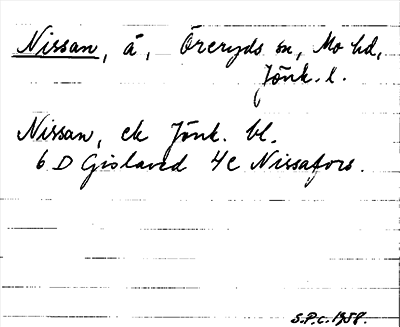 Nissan, å, Öreryds sn, Mo hd,
Jönk. l.
Nissan, ek Jönk. bl.
6 D Gislaved 4c Nissafors.
S.P.c. 1958.